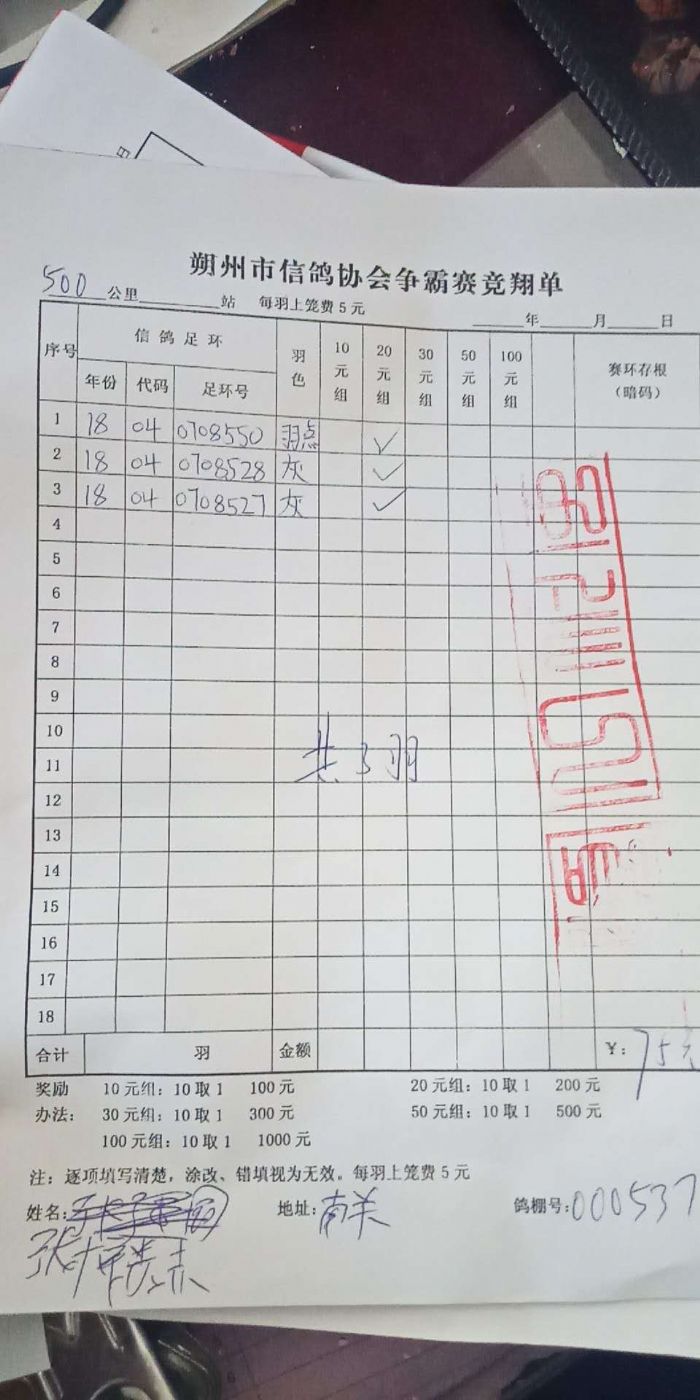 朔州市信鸽协会争霸赛竞翔单
500公里 站 每羽上笼费5元
年 月 日
序号 信鸽足环 羽色 10元组 20元组 30元组 50元组 100元组 赛环存根（暗码）
年份 代码 足环号
1 18 04 0708550 羽点 ✓
2 18 04 0708528 灰 ✓
3 18 04 0708527 灰 ✓
4
5
6
7
8
9
10
共3羽
11
12
13
14
15
16
17
18
合计 羽 金额 ¥: 75元
奖励 10元组: 10取1 100元 20元组: 10取1 200元
办法: 30元组: 10取1 300元 50元组: 10取1 500元
100元组: 10取1 1000元
注: 逐项填写清楚，涂改、错填视为无效。每羽上笼费5元
姓名: 地址: 南关 鸽棚号: 000537